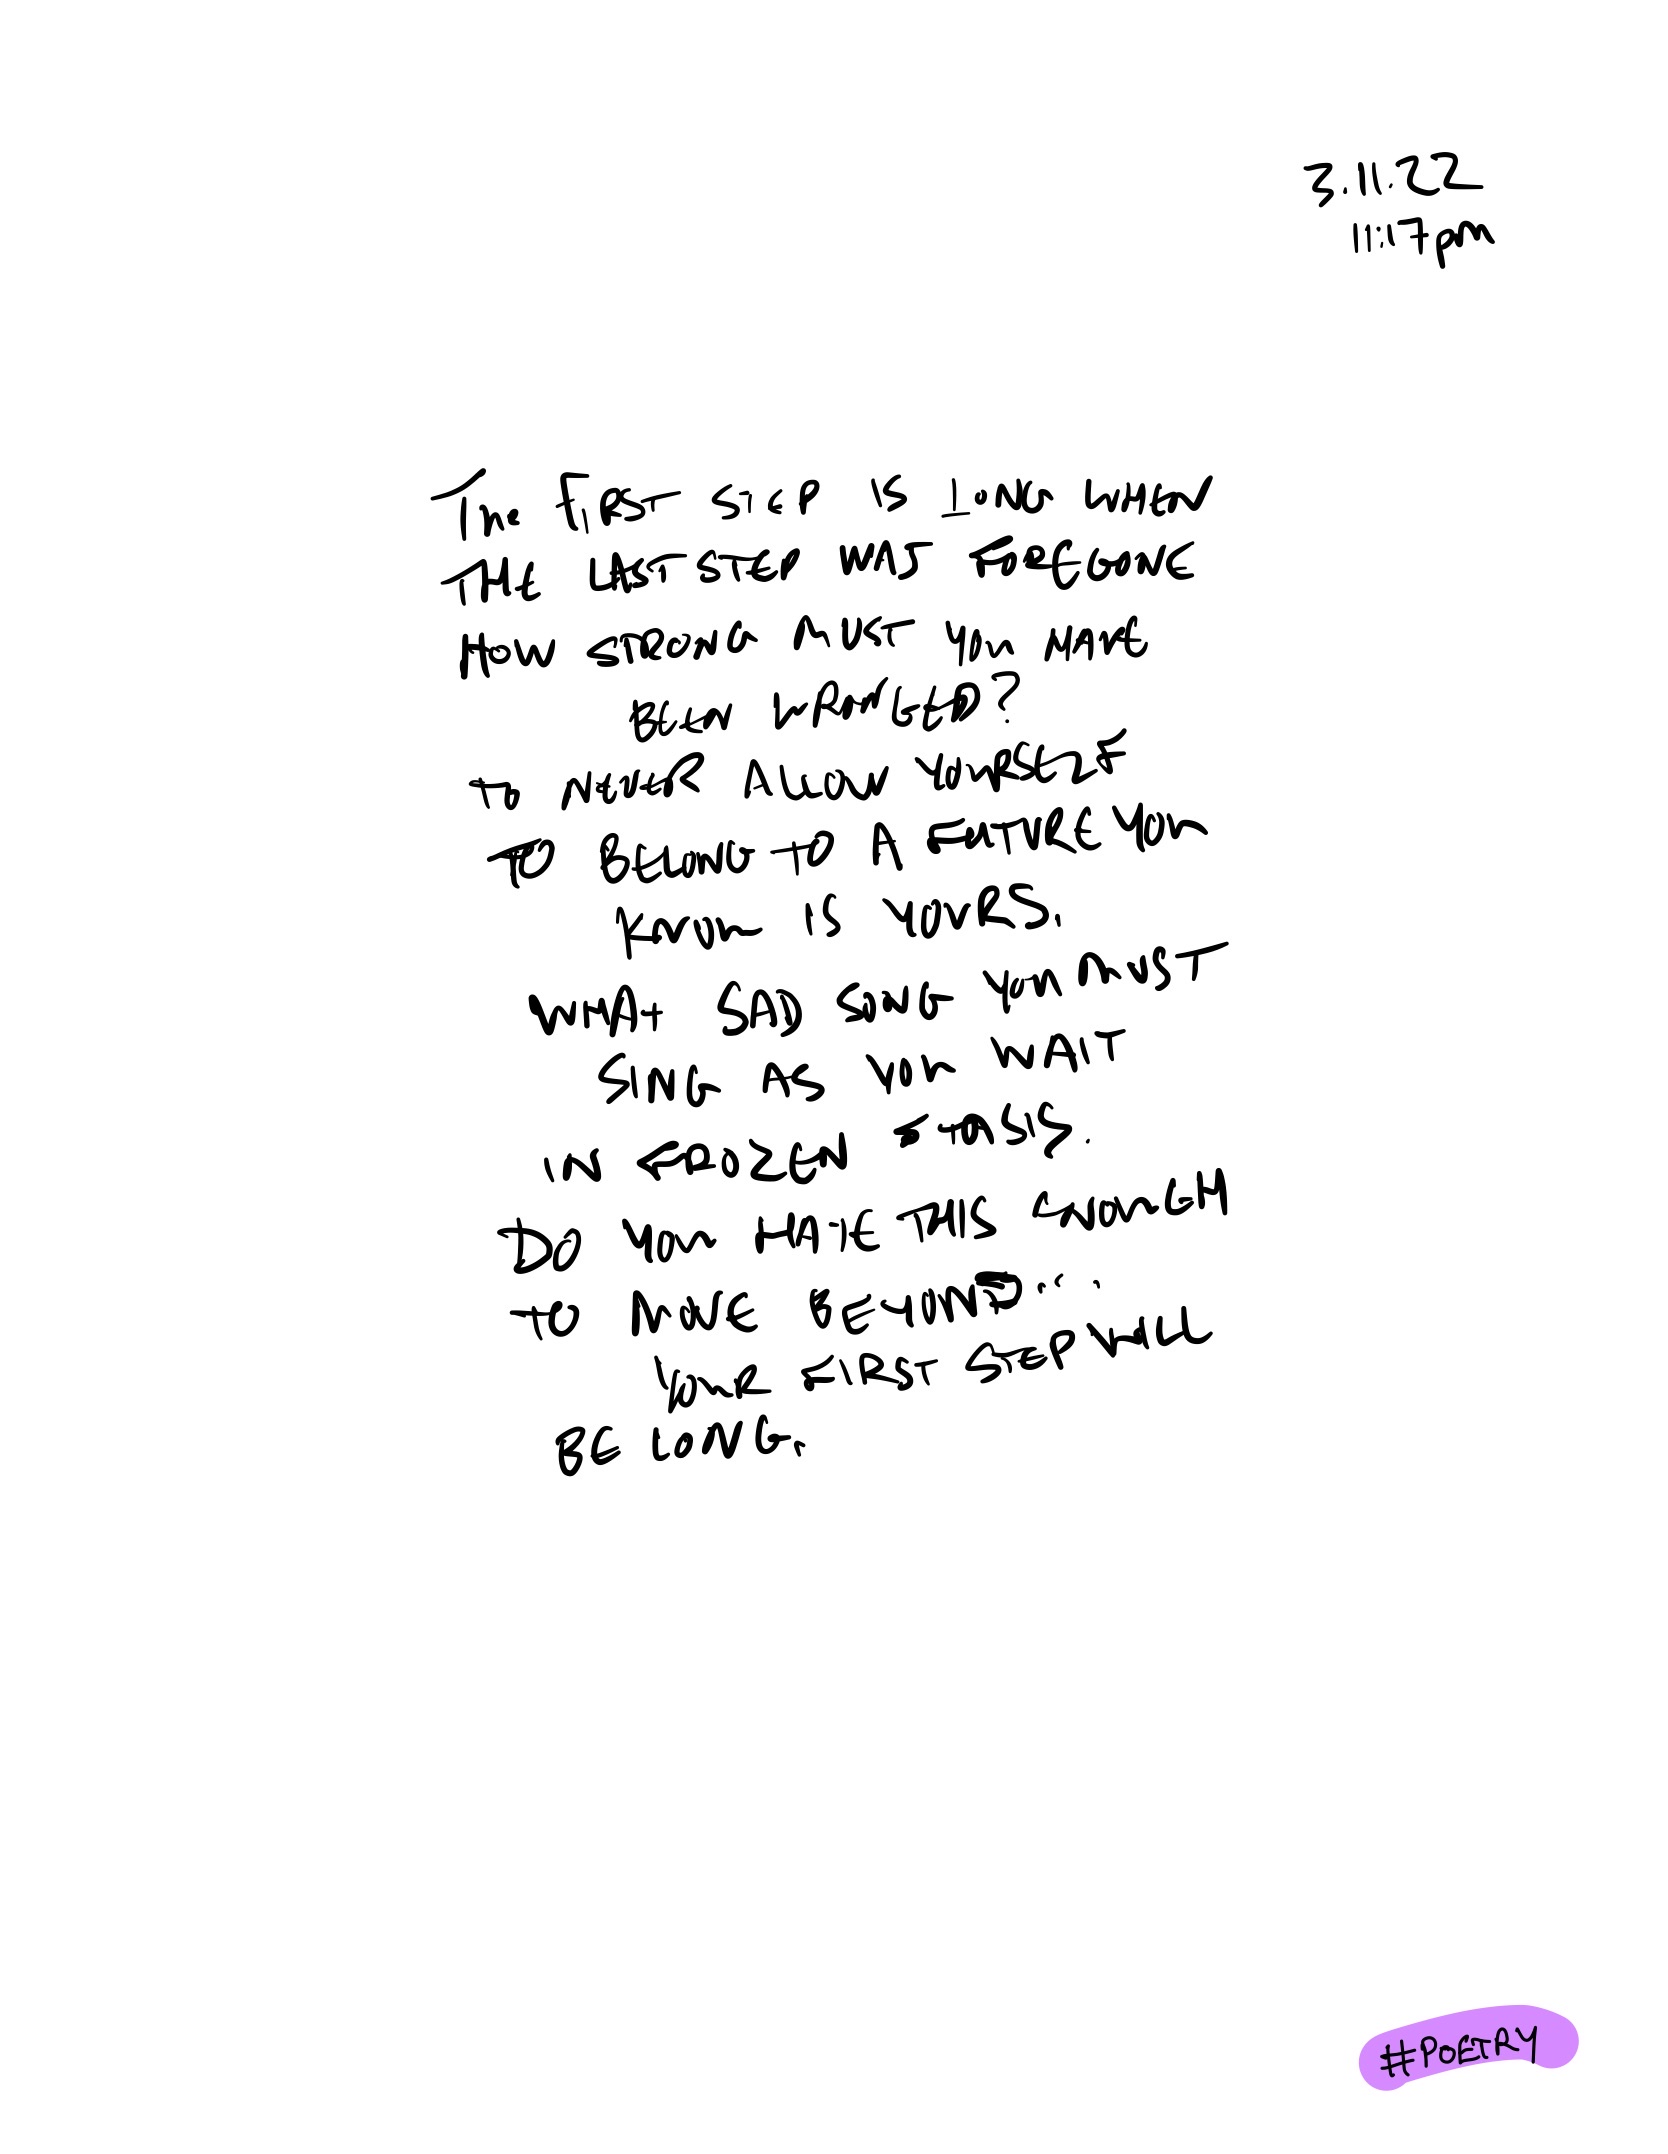 3.11.22
11:17pm
The FIRST STEP IS LONG WHEN
THE LAST STEP WAS FOREGONE
HOW STRONG MUST YOU HAVE
BEEN WRONGED?
TO NEVER ALLOW YOURSELF
TO BELONG TO A FUTURE YOU
KNOW IS YOURS.
WHAT SAD SONG YOU MUST
SING AS YOU WAIT
IN FROZEN STASIS.
DO YOU HATE THIS ENOUGH
TO MOVE BEYOND...
YOUR FIRST STEP WILL
BE LONG.
#POETRY